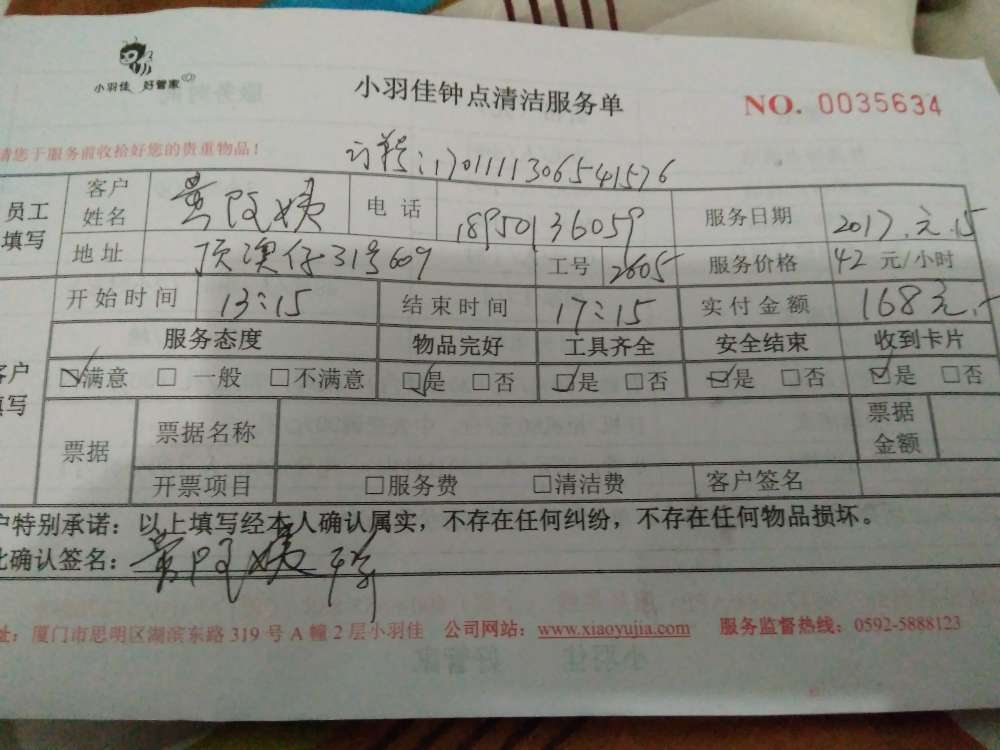 小羽佳 好管家
小羽佳钟点清洁服务单
NO. 0035634
请您于服务前收拾好您的贵重物品！
订单号:1701111306541576
员工填写 客户姓名 黄阿姨 电话 18950136059 服务日期 2017.元.15
地址 顶澳仔31号609 工号 2605 服务价格 42 元/小时
开始时间 13:15 结束时间 17:15 实付金额 168元.-
服务态度 物品完好 工具齐全 安全结束 收到卡片
客户填写 ☑满意 □ 一般 □不满意 ☑是 □否 ☑是 □否 ☑是 □否 ☑是 □否
票据 票据名称 票据金额
开票项目 □服务费 □清洁费 客户签名
户特别承诺：以上填写经本人确认属实，不存在任何纠纷，不存在任何物品损坏。
此确认签名：黄阿姨
址：厦门市思明区湖滨东路 319 号 A 幢 2 层小羽佳 公司网站：www.xiaoyujia.com 服务监督热线：0592-5888123